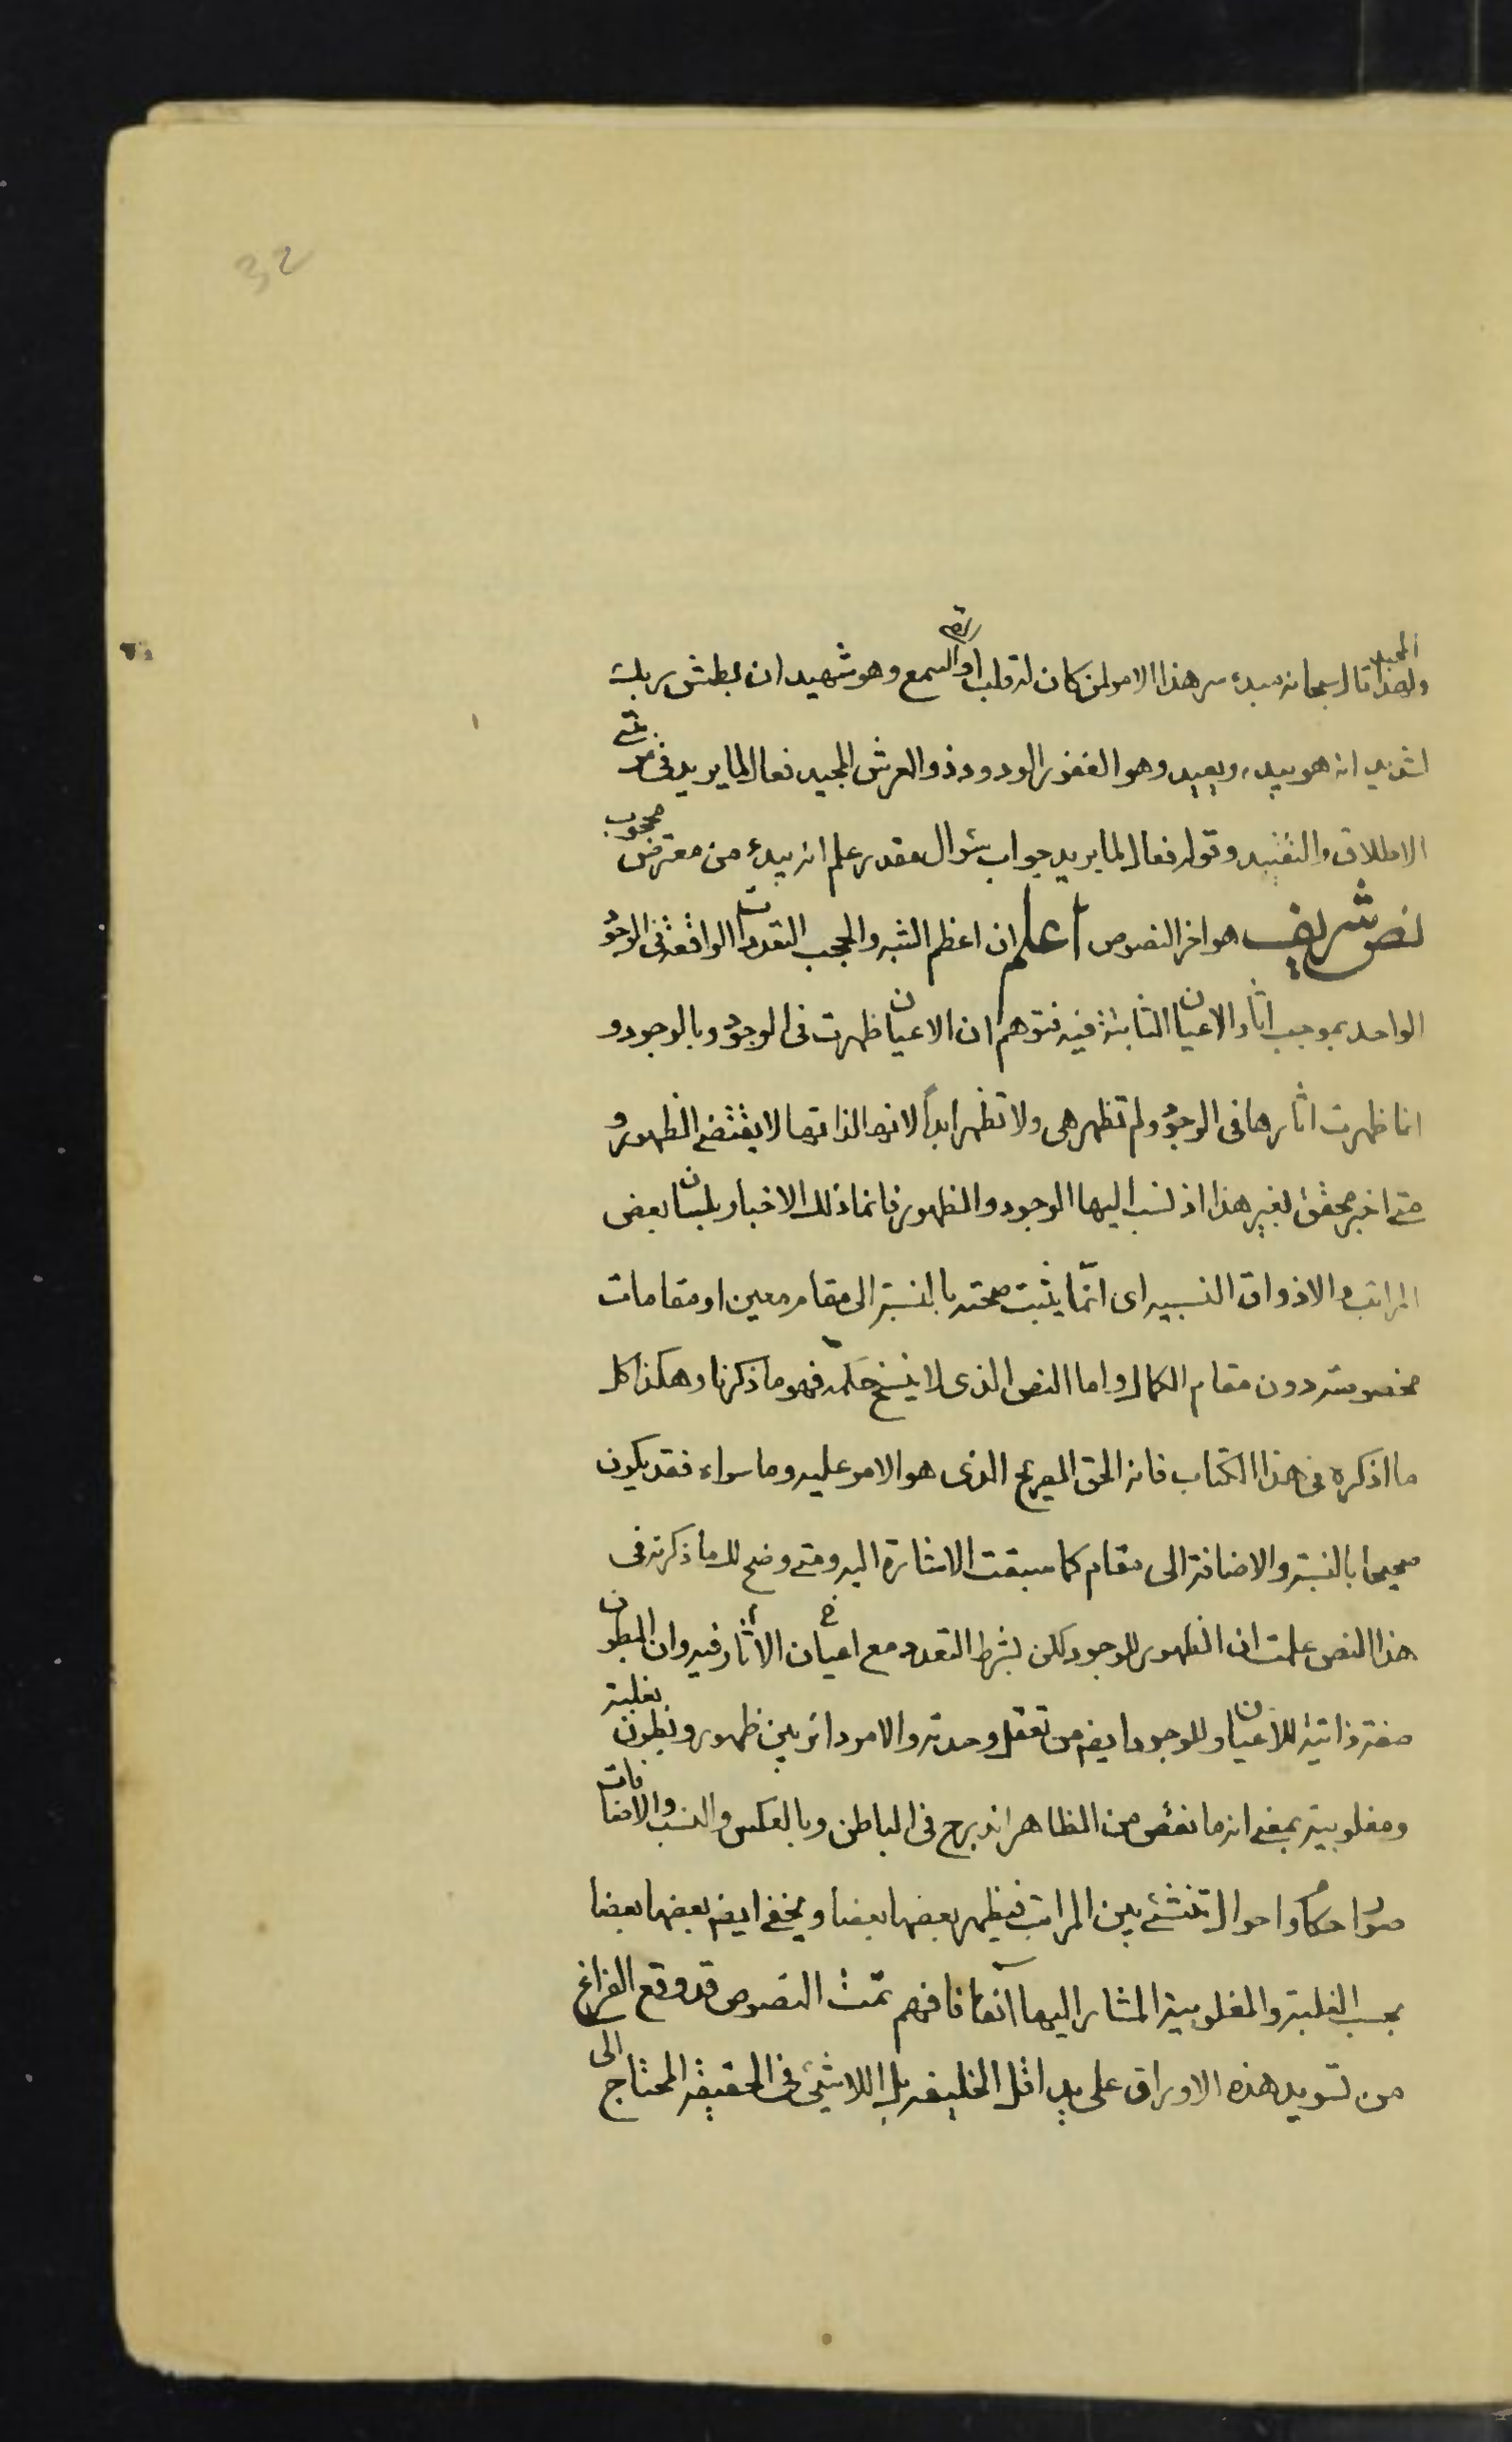 32
ولهذا قال سبحانه مبدء سر هذا الامر لمن كان له قلب او القى السمع وهو شهيد ان بطش ربك
لشديد انه هو يبدء ويعيد وهو الغفور الودود ذو العرش المجيد فعال لما يريد فى
الاطلاق والتقييد وقوله فعال لما يريد جواب سئوال مقدر علم انه يبدء من معترض محجوب
نص شريف هو اخر النصوص اعلم ان اعظم الشبه والحجب التعددات الواقعة فى الوجود
الواحد بموجب اثار الاعيان الثابتة فيه فتوهم ان الاعيان ظهرت فى الوجود وبالوجود و
انما ظهرت اثارها فى الوجود ولم تظهر هى ولا تظهر ابداً لانها لذاتها لا يقتضى الظهور و
متى اخبر محقق بغير هذا اذ نسب اليها الوجود والظهور فانما ذلك الاخبار بلسان بعض
المراتب والاذواق النسبيه اى انّما يثبت صحته بالنسبة الى مقام معين او مقامات
مخصوصة دون مقام الكمال واما النص الذى لا ينسخ حكمه فهو ما ذكرنا وهكذا كل
ما اذكره فى هذا الكتاب فانه الحق الصريح الذى هو الامر عليه وما سواه فقد يكون
صحيحا بالنسبة والاضافة الى مقام كما سبقت الاشارة اليه ومتى وضح لك ما ذكرته فى
هذا النص علمت ان الظهور للوجود لكن بشرط التعدد مع اعيان الاثار فيه وان البطون
صفة ذاتية للاعيان وللوجود ايضم من تعقل وحدته والامر دائر بين ظهور وبطون بغلبة
ومغلوبية بمعنى انه ما نقص من الظاهر اندرج فى الباطن وبالعكس والنسب والاضافات
صور احكام واحوال تنشئ بين المراتب فيظهر بعضها بعضا ويخفى ايضم بعضها بعضا
بحسب الغلبة والمغلوبية المشار اليها آنفا فافهم تمت النصوص قد وقع الفراغ
من تسويد هذه الاوراق على يد اقل الخليقه بل اللاشيئ فى الحقيقة المحتاج الى